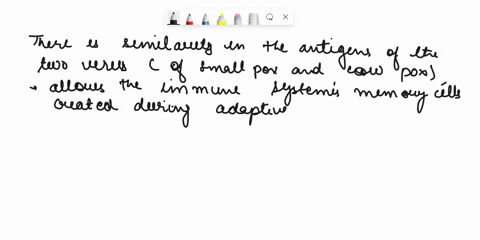 There is similarity in the antigens of the
two virus ( of small pox and cow pox)
• allows the immune system's memory cells
created during adaptive